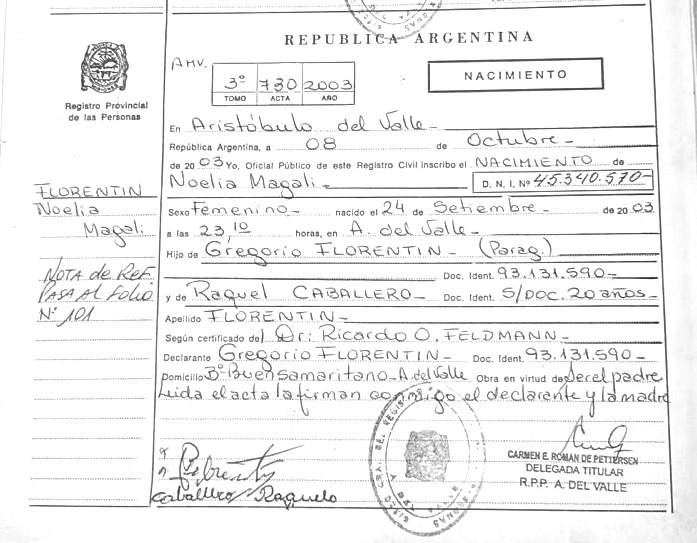 REPUBLICA ARGENTINA
AMV.
3º 730 2003
TOMO ACTA AÑO
NACIMIENTO
Registro Provincial
de las Personas
En Aristóbulo del Valle
República Argentina, a 08 de Octubre
de 2003 Yo, Oficial Público de este Registro Civil inscribo el NACIMIENTO de
Noelia Magali D. N. I. Nº 45.340.570
Sexo Femenino nacido el 24 de Setiembre de 2003
a las 23,10 horas, en A. del Valle
Hijo de Gregorio FLORENTIN (Parag.)
Doc. Ident. 93.131.590
y de Raquel CABALLERO Doc. Ident. S/DOC. 20 años
Apellido FLORENTIN
Según certificado del Dr. Ricardo O. FELDMANN
Declarante Gregorio FLORENTIN Doc. Ident. 93.131.590
Domicilio Bº Buen Samaritano A. del Valle Obra en virtud de Ser el padre
Leida el acta la firman conmigo el declarante y la madre
FLORENTIN
Noelia
Magali
NOTA de REF.
PASA AL FOLIO
Nº 101
Caballero Raquel
CARMEN E. ROMAN DE PETTERSEN
DELEGADA TITULAR
R.P.P. A. DEL VALLE